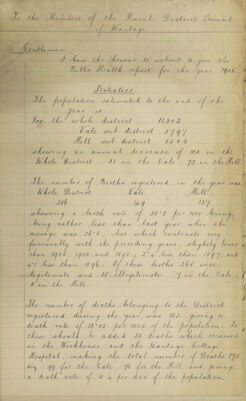 To the Members of the Rural District Council
of Wantage.
Gentlemen
I have the honour to submit to you the
Public Health report for the year 1906.
Statistics
The population estimated to the end of the
year is
For the whole district
Vale sub district 5797
Hill sub district
showing an annual decrease of in the
Whole District. 31 in the Vale 72 in the Hill.
The number of Births registered in the year was
Whole District Vale Hill
149 137
showing a birth rate of 25.3 per 1000 living,
being rather less than last year when the
average was 26. , but which contrasts very
favourably with the preceding years, slightly lower
than 1901, 1900 and 1898, less than 1897, and
less than 1896. Of these births were
legitimate and 18 illegitimate 7 in the Vale,
11 in the Hill.
The number of deaths belonging to the District
registered during the year was 152, giving a
death rate of per 1000 of the population. To
these should be added 23 deaths which occurred
in the Workhouse and the Wantage Cottage
Hospital, making the total number of Deaths 175
for the Vale, for the Hill and giving
a death rate of per 1000 of the population.